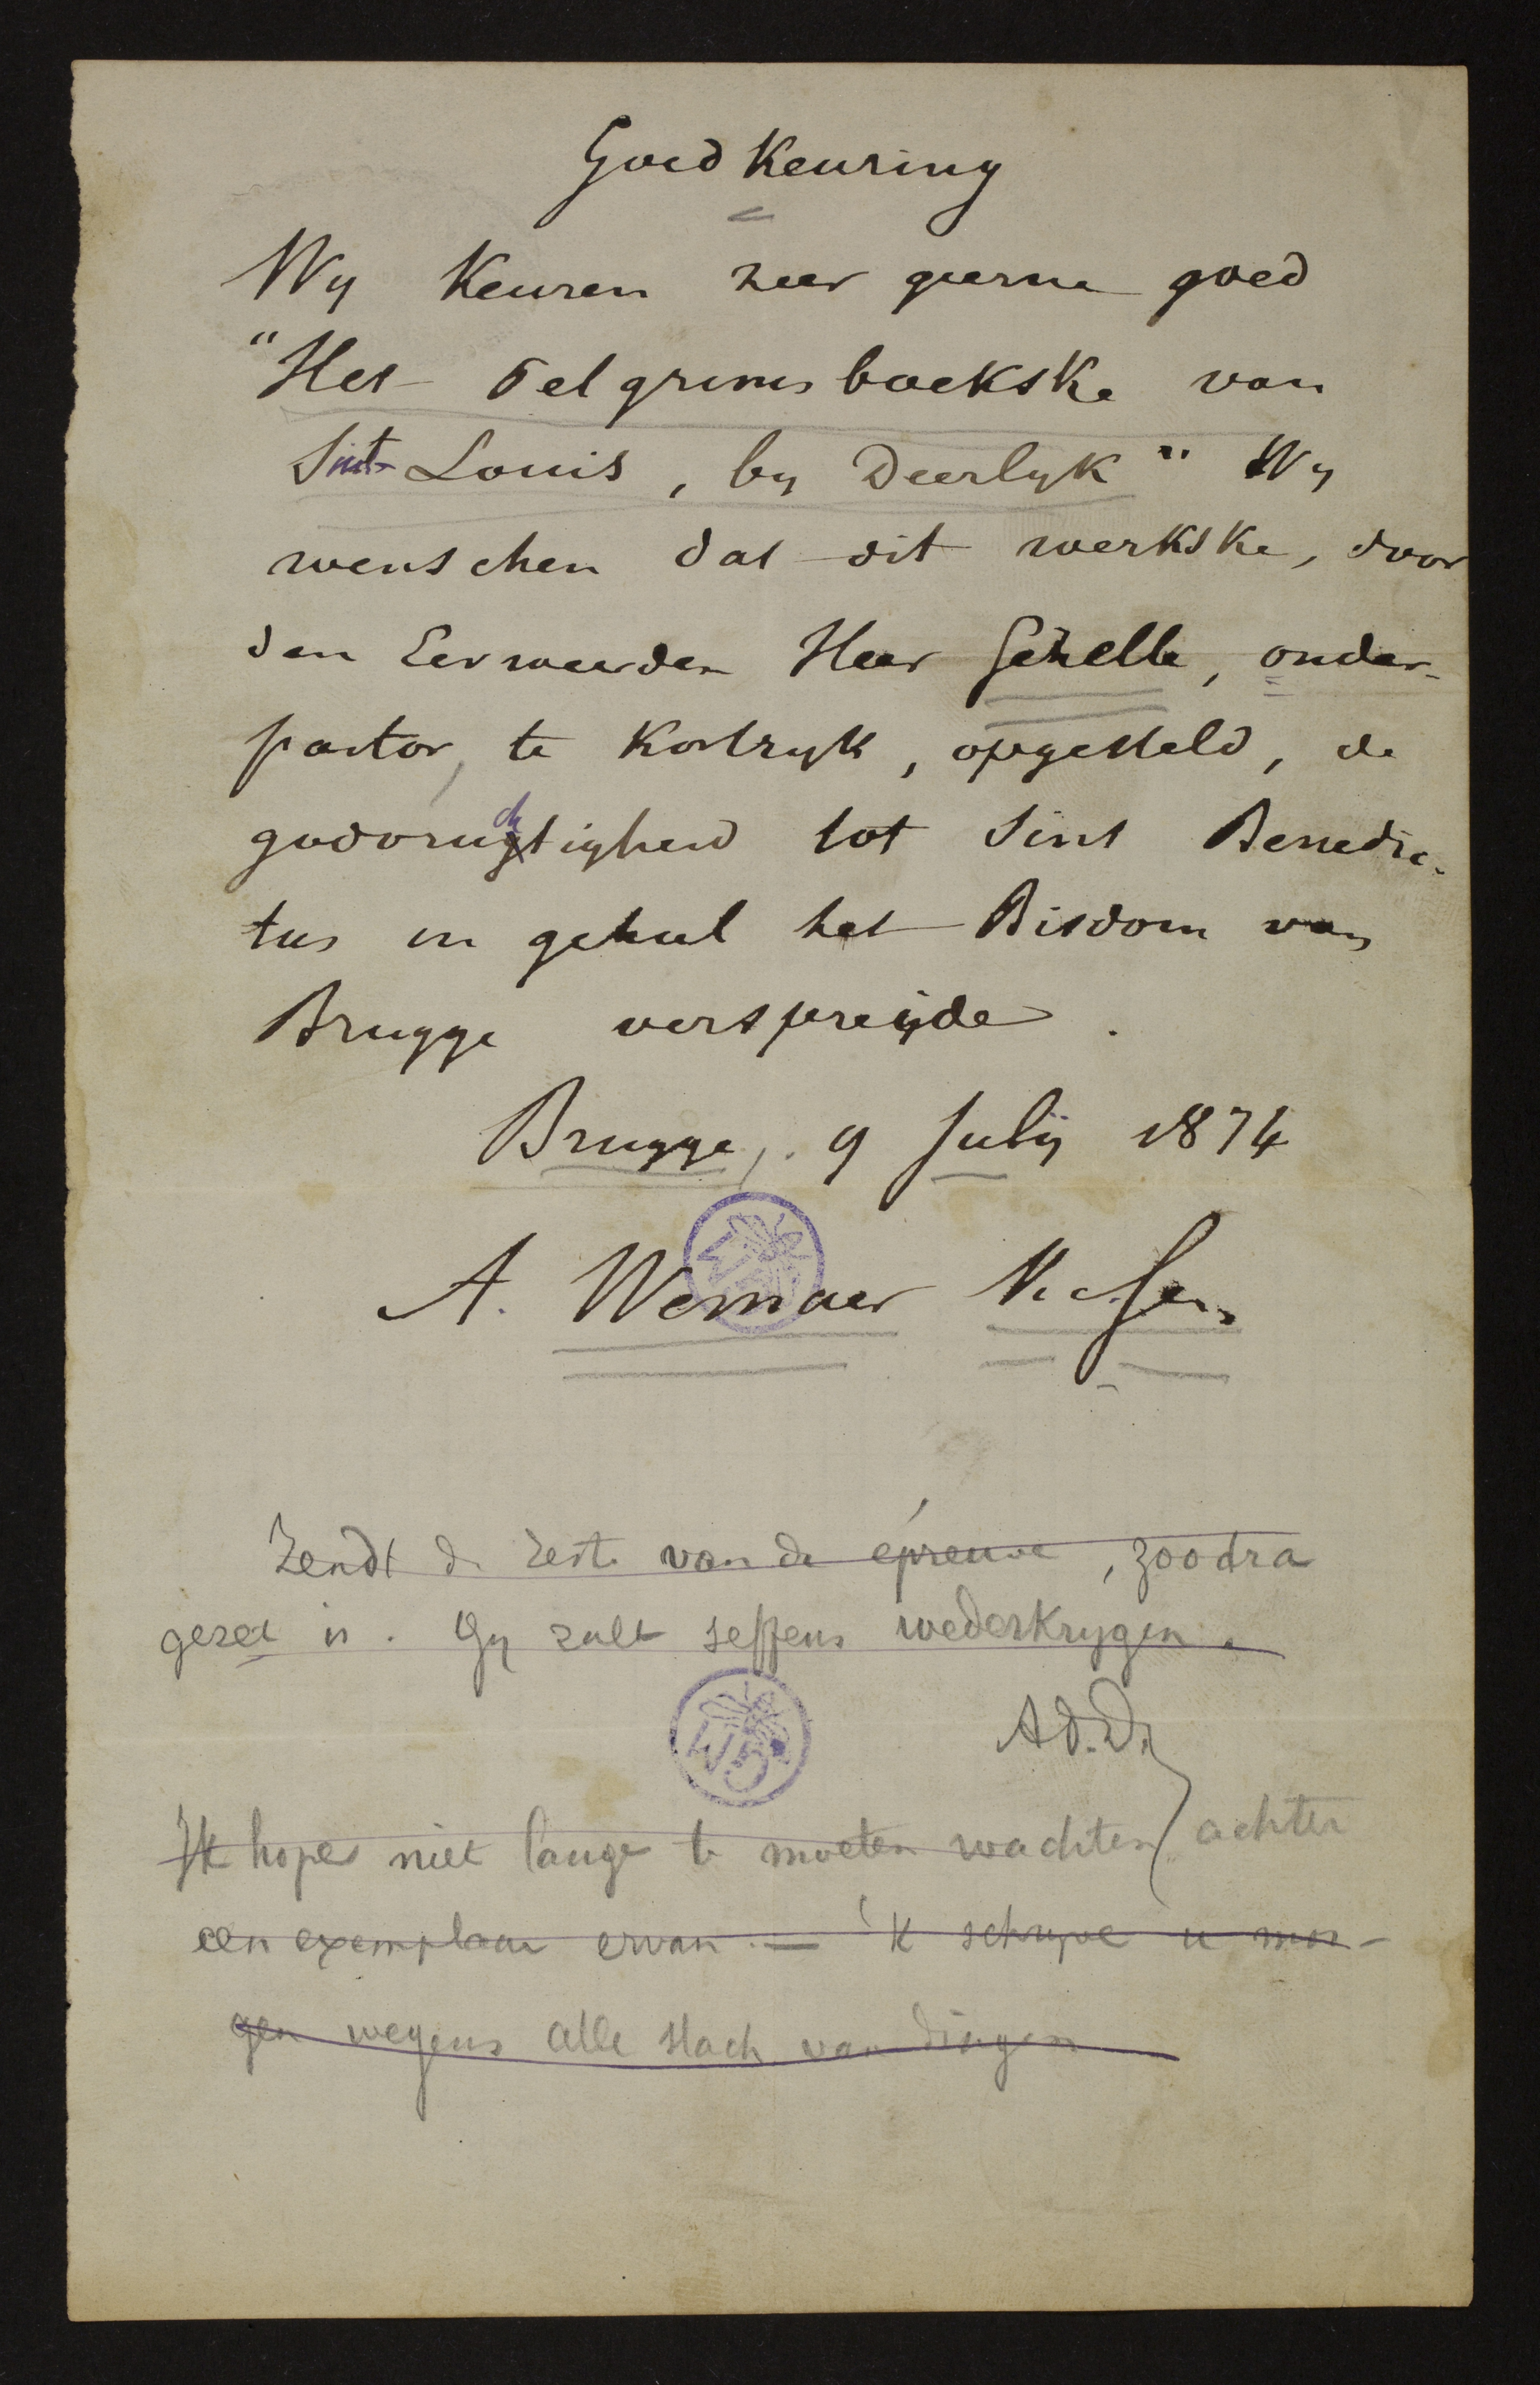 Goedkeuring
Wy Keuren zeer geerne goed
"Het Pelgrims boekske van
Sint Louis, by Deerlyk" Wy
wenschen dat dit werkske, door
den Eerweerden Heer Gezelle, onder-
pastor, te Kortryk, opgesteld, de
godvruchtigheid tot Sint Benedic-
tus in geheel het Bisdom van
Brugge verspreijde.
Brugge, 9 Julij 1874
A. Wemaer Vic. Gen.
Zendt de reste van de épreuve, zoodra
gezet is. Gy zult seffens wederkrygen.
WB
Ad. D.
Ik hope niet lange te moeten wachten achter
een exemplaar ervan. — 'k schryve u mor-
gen wegens alle slach van dingen